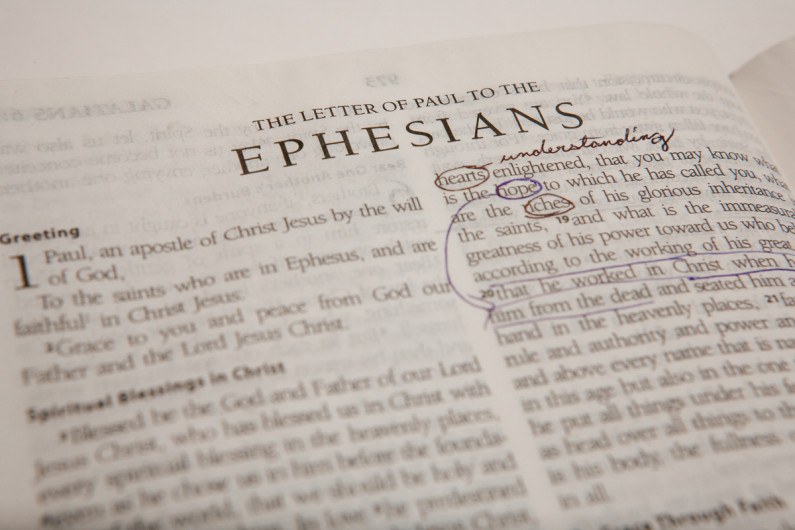 THE LETTER OF PAUL TO THE
EPHESIANS
Greeting
1 Paul, an apostle of Christ Jesus by the will
of God,
To the saints who are in Ephesus, and are
faithful in Christ Jesus:
2Grace to you and peace from God our
Father and the Lord Jesus Christ.
Spiritual Blessings in Christ
3Blessed be the God and Father of our Lord
Jesus Christ, who has blessed us in Christ with
every spiritual blessing in the heavenly places,
as he chose us in him before the founda-
of the world, that we should be holy and
he predestined
understanding
hearts enlightened, that you may know
is the hope to which he has called you,
are the riches of his glorious inheritance
the saints, 19and what is the immeasur
greatness of his power toward us who be
according to the working of his great
20that he worked in Christ when
him from the dead and seated him
hand in the heavenly places, 21fa
rule and authority and power and
and above every name that is na
in this age but also in the one
he put all things under his fe
as head over all things to th
is his body, the fullness
in all.
Through Faith